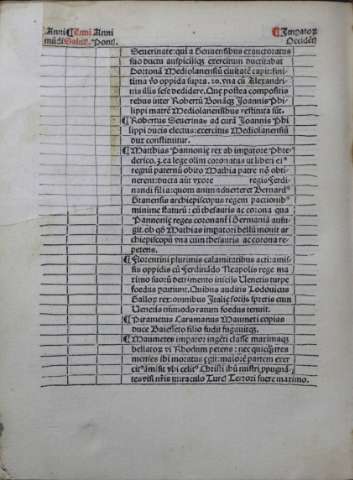 Anni Anni Anni Imperator
mūdi Salut. Pont. Occidēn
Severinate: qui a Genuensibus exauctoratus
suo ductu auspiciisq; exercitum ductabat
Dertonā Mediolanensiū civitatē capit: fini-
tima ꝙ oppida supra .10. una cū Alexandri-
nis illis sese dedidere. Que postea compositis
rebus inter Robertū Bonāq; Joannis Phi-
lippi matrē Mediolanensibus restituta sūt.
¶Robertus Severinas ad curā Joannis Phi-
lippi ducis electus: exercitus Mediolanensiū
dux constituitur.
¶Matthias Pannonię rex ab imperatore Phe-
derico, ea lege olim coronatus ut liberi ei
regnū paternū obito Mathia patre nō obti-
nerent: ducta aūt uxore regis Ferdi-
nandi filia: quom animadverteret Bernardꝰ
Stanensis archiepiscopus regem pactionib
minime staturū : cū thesauris ac corona qua
Pannonię reges coronant I Germaniā aufu-
git. ob qđ Mathias imperatori bellū movit ar
chiepiscopū una cum thesauris ac corona re-
petens.
¶Florentini plurimis calamitatibus acti: amis-
sis oppidis cū Ferdinādo Neapolis rege ma
rimo suorū detrimento inicijs Venetis turpe
foedus petiunt. Quibus auditis Lodovicus
Gallorꝝ rex: omnibus Italię socijs spretis cum
Venetis nōmodo ratum foedus tenuit.
¶Pirametus Caramanus Maumeti copias
duce Baiesseto filio fudit fugavitq;.
¶Maumetes imperator ingēti classe marimaq;
bellatorꝝ vi Rhodum petens : nec quicq̄ tres
menses ibi moratus egit: maiorē partem exer
citꝰ amisit ubi celitꝰ Christi ihū mistri, ppugnā-
tes visi. nr̄is miraculo Turcꝭ Terrori fuere maximo.